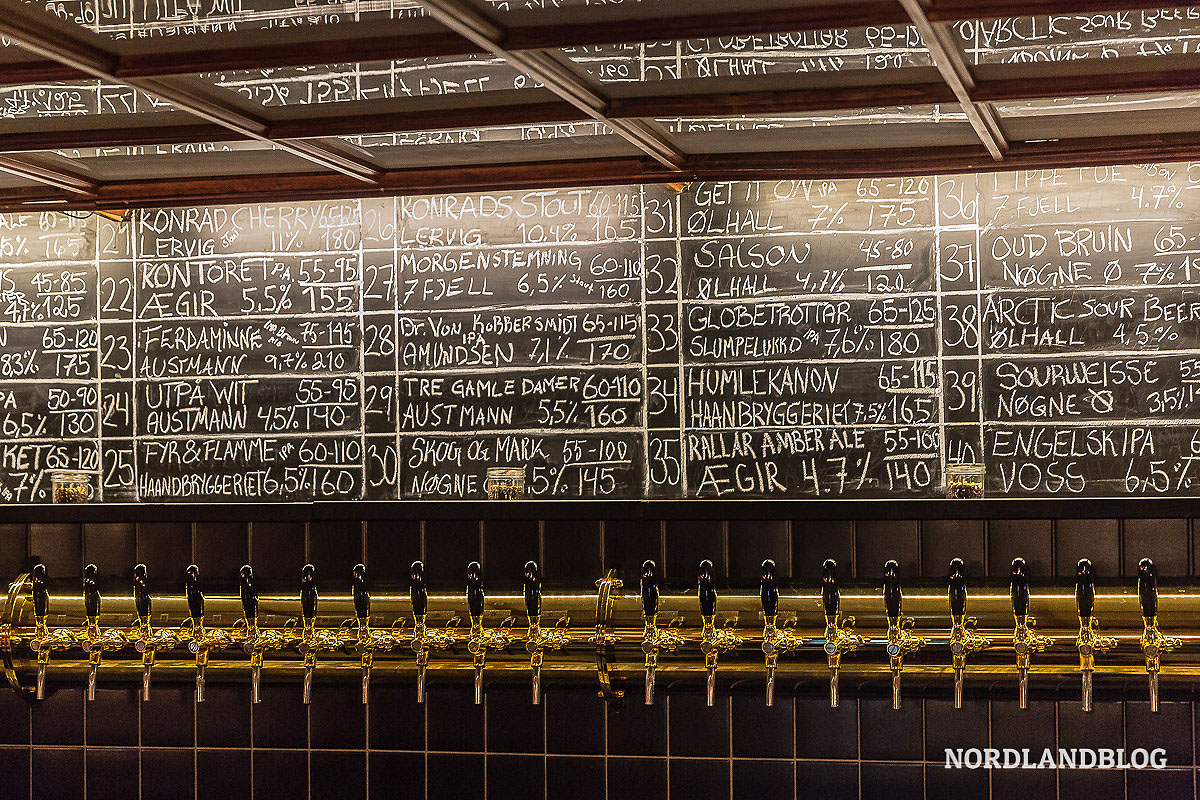 ALE 60-
5% 165
45-85
4,7% 125
65-120
8,3% 175
PA 50-90
6,5% 130
KET 65-120
7%
21 KONRAD CHERRY 65-125
LERVIG Stout 11% 180
22 KONTORET IPA 55-95
ÆGIR 5,5% 155
23 FERDAMINNE 75-145
AUSTMANN 9,7% 210
24 UTPÅ WIT 55-95
AUSTMANN 4,5% 140
25 FYR & FLAMME IPA 60-110
HAANDBRYGGERIET 6,5% 160
26 KONRADS STOUT 60-115
LERVIG 10.4% 165
27 MORGENSTEMNING 60-110
7 FJELL 6,5% Stout 160
28 Dr. VON KOBBERSMIDT 65-115
IPA
AMUNDSEN 7,1% 170
29 TRE GAMLE DAMER 60-110
AUSTMANN 5,5% 160
30 SKOG OG MARK 55-100
NØGNE ,5% 145
31 GET IT ON IPA 65-120
ØLHALL 7% 175
32 SAISON 45-80
ØLHALL 4,7% 120
33 GLOBETROTTAR 65-125
SLUMPELUKKO IPA 7,6% 180
34 HUMLEKANON 65-115
HAANDBRYGGERIET 7.5% 165
35 RALLAR AMBER ALE 55-100
ÆGIR 4.7% 140
36
7 FJELL 4.7%
37 OUD BRUIN 65-
NØGNE Ø 7%
38 ARCTIC SOUR BEER
ØLHALL 4,5%
39 SOURWEISSE
NØGNE Ø 3,5%
40 ENGELSK IPA
VOSS 6,5%
NORDLANDBLOG